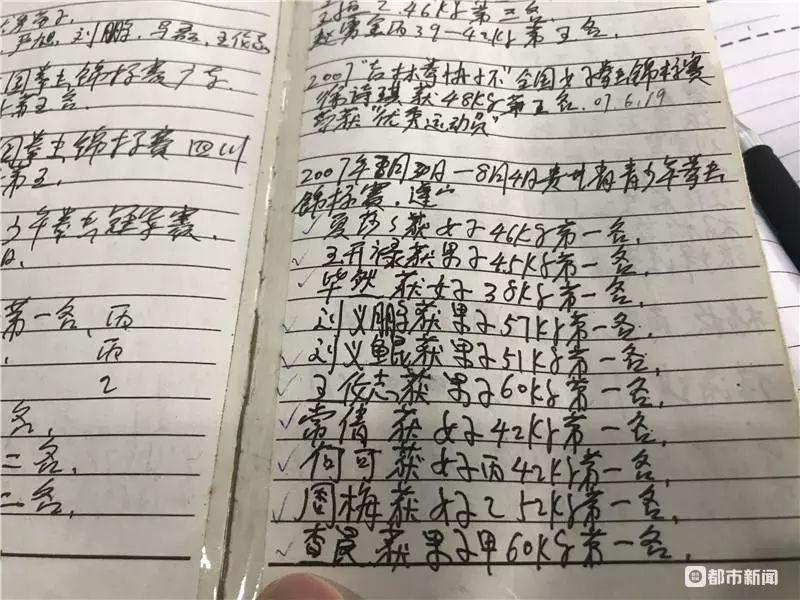 严旭,刘鹏,
国拳击锦标赛广东.
第五名.
国拳击锦标赛 四川
第五.
少年拳击冠军赛.
第一名,丙
丙
乙
名,
二名.
二名,
2.46Kg第三名
39-42Kg第五名.
2007 全国女子拳击锦标赛
获48Kg第五名.07.6.19
荣获"优秀运动员"
8月4日贵州省青少年拳击
锦标赛.遵义
夏莎莎获女子46Kg第一名,
王开禄获男子45Kg第一名,
毕然获女子38Kg第一名,
刘义鹏获男子57Kg第一名,
刘义鲲获男子51Kg第一名,
王俊志获男子60Kg第一名,
常倩获女子42Kg第一名,
何可获女子丙42Kg第一名,
周梅获女子乙52Kg第一名,
获男子甲60Kg第一名,
都市新闻